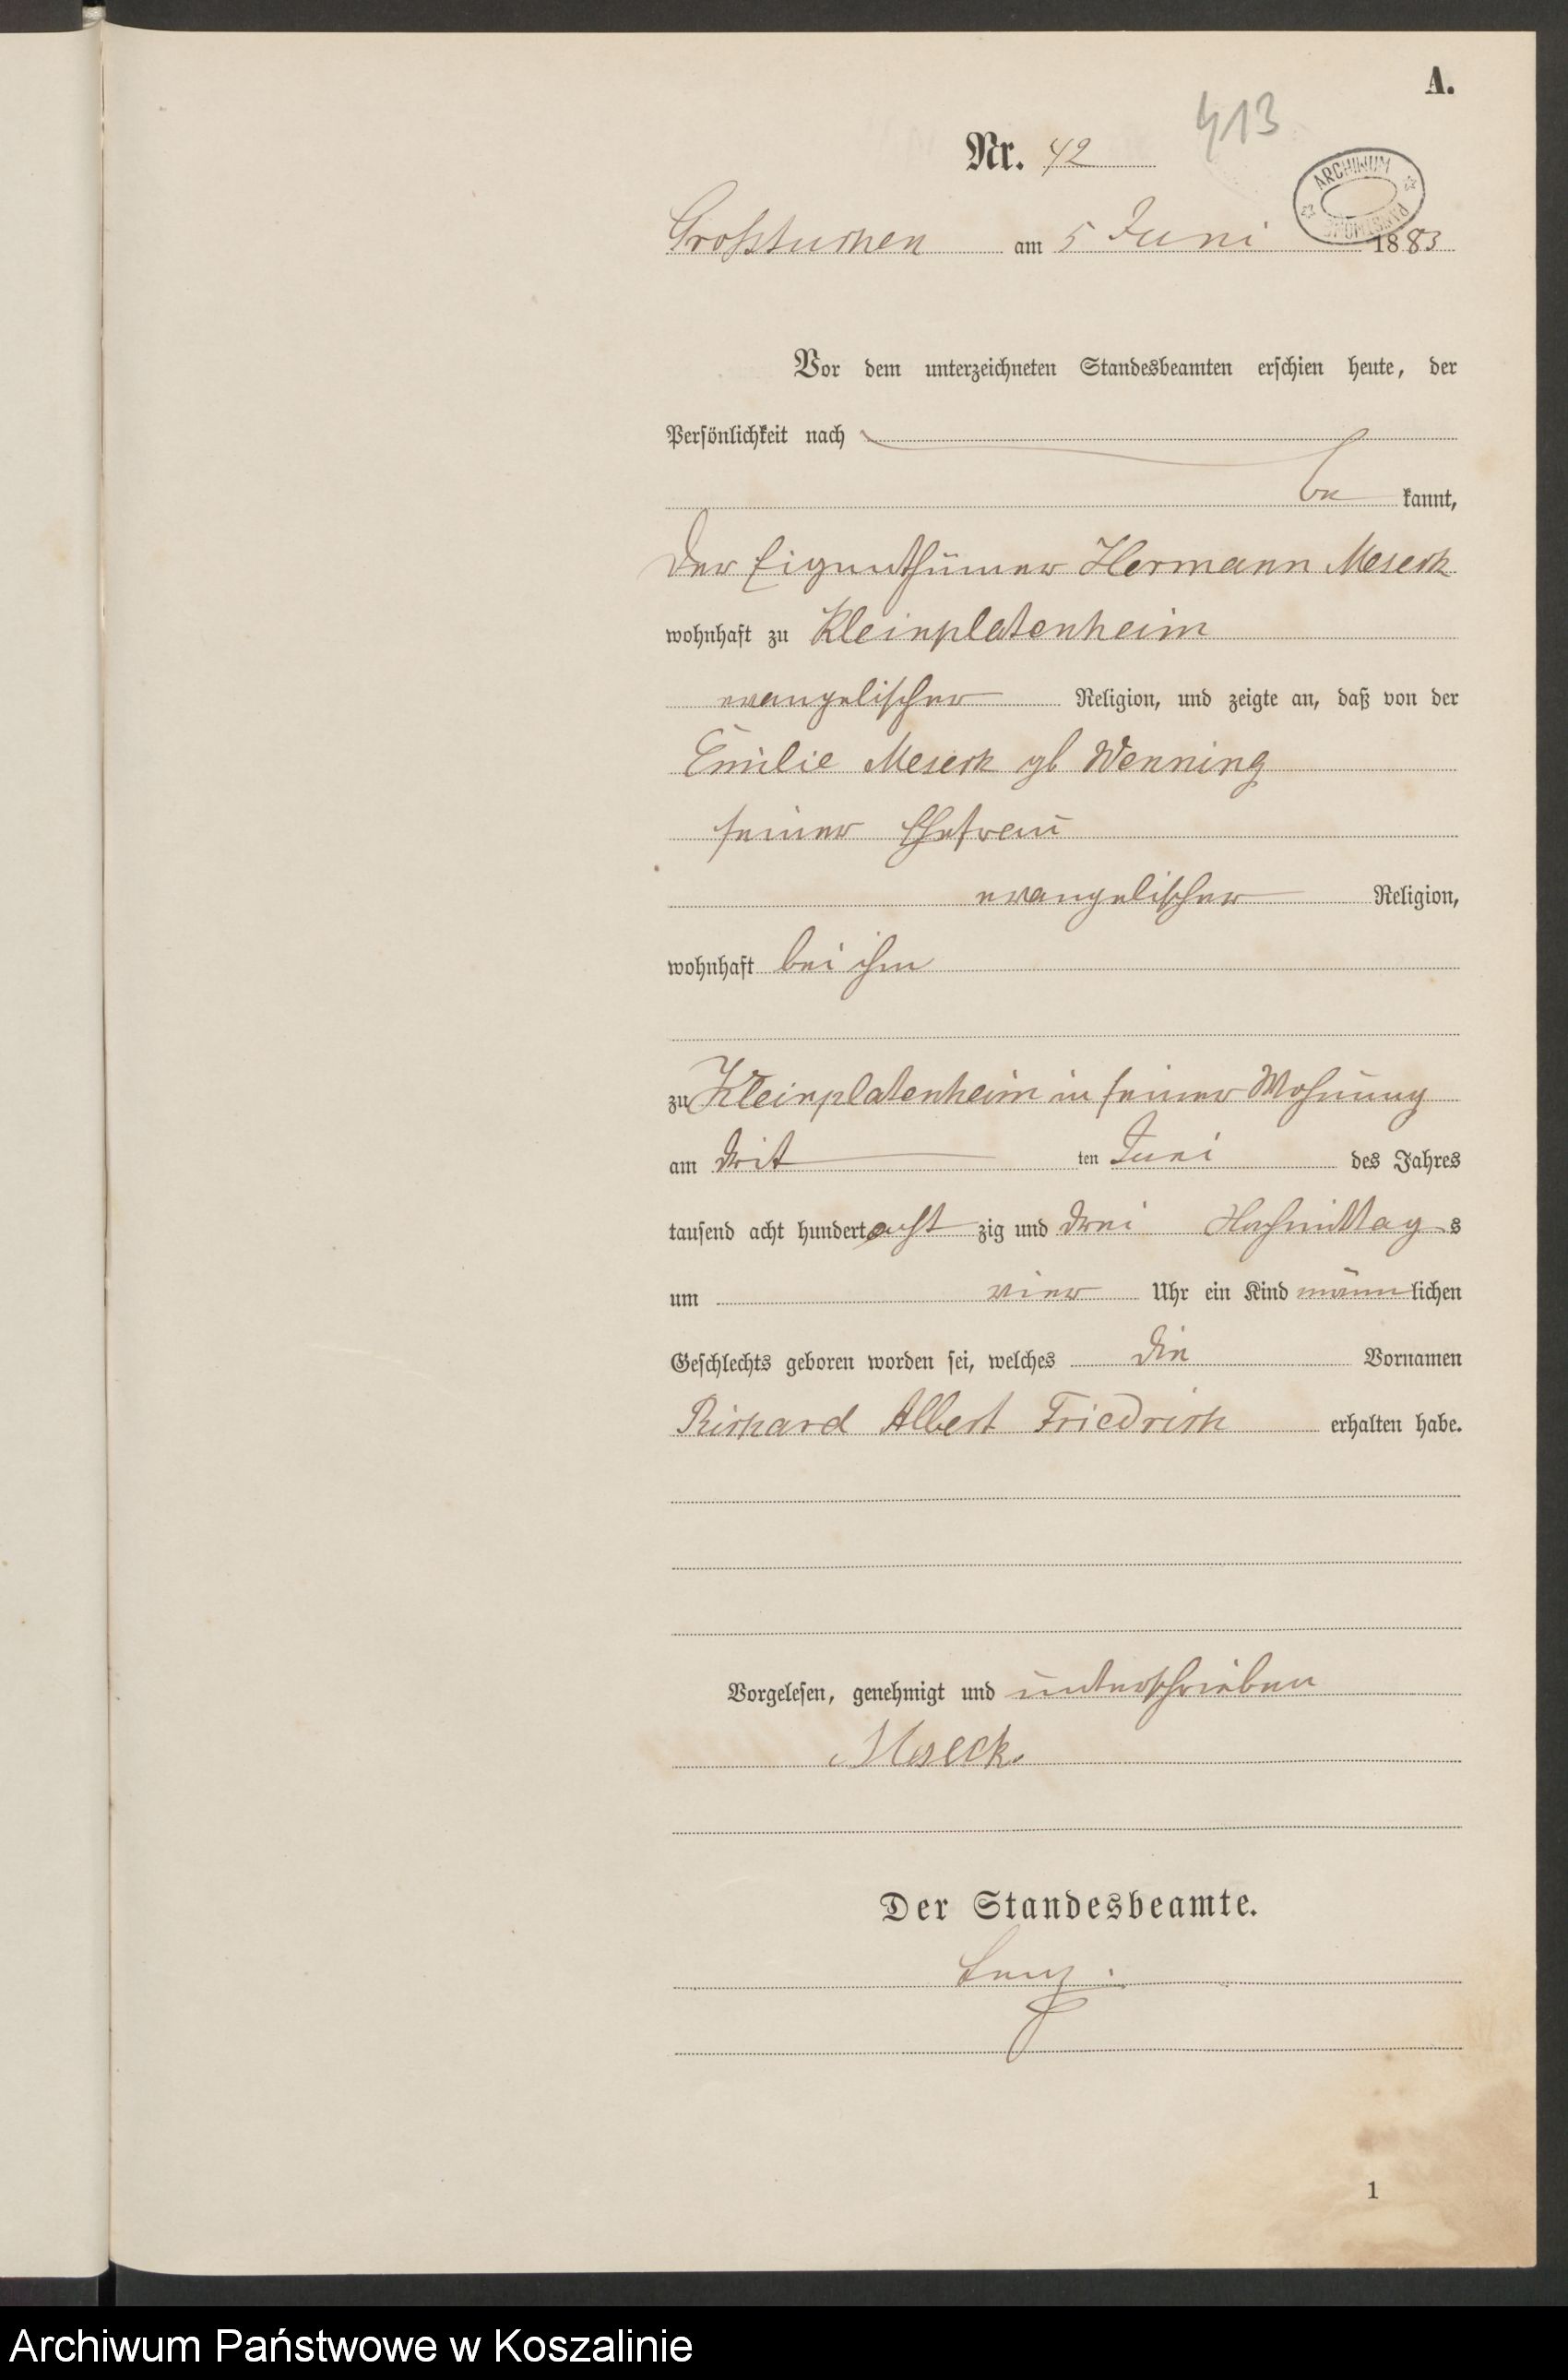 A.
413
Nr. 42
ARCHIWUM PAŃSTWOWE
Großtuchen am 5 Juni 1883
Vor dem unterzeichneten Standesbeamten erschien heute, der
Persönlichkeit nach
be kannt,
der Eigenthümer Hermann Meseck
wohnhaft zu Kleinplatenheim
evangelischer Religion, und zeigte an, daß von der
Emilie Meseck gb Wenning
seiner Ehefrau
evangelischer Religion,
wohnhaft bei ihm
zu Kleinplatenheim in seiner Wohnung
am drit ten Juni des Jahres
tausend acht hundert acht zig und drei Nachmittag s
um vier Uhr ein Kind männ lichen
Geschlechts geboren worden sei, welches die Vornamen
Richard Albert Friedrich erhalten habe.
Vorgelesen, genehmigt und unterschrieben
Meseck.
Der Standesbeamte.
1
Archiwum Państwowe w Koszalinie